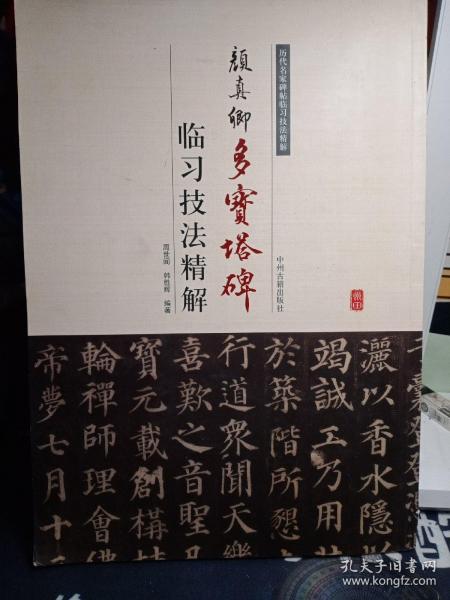 历代名家碑帖临习技法精解
顔真卿多寶塔碑
临习技法精解
周世闻 编著
中州古籍出版社
灑以香水隱以
竭誠工乃用
於築階所懇
行道衆聞天樂
喜歎之音聖
寶元載創構
輪禪師理會佛
帝夢七月十
孔夫子旧书网
www.kongfz.com